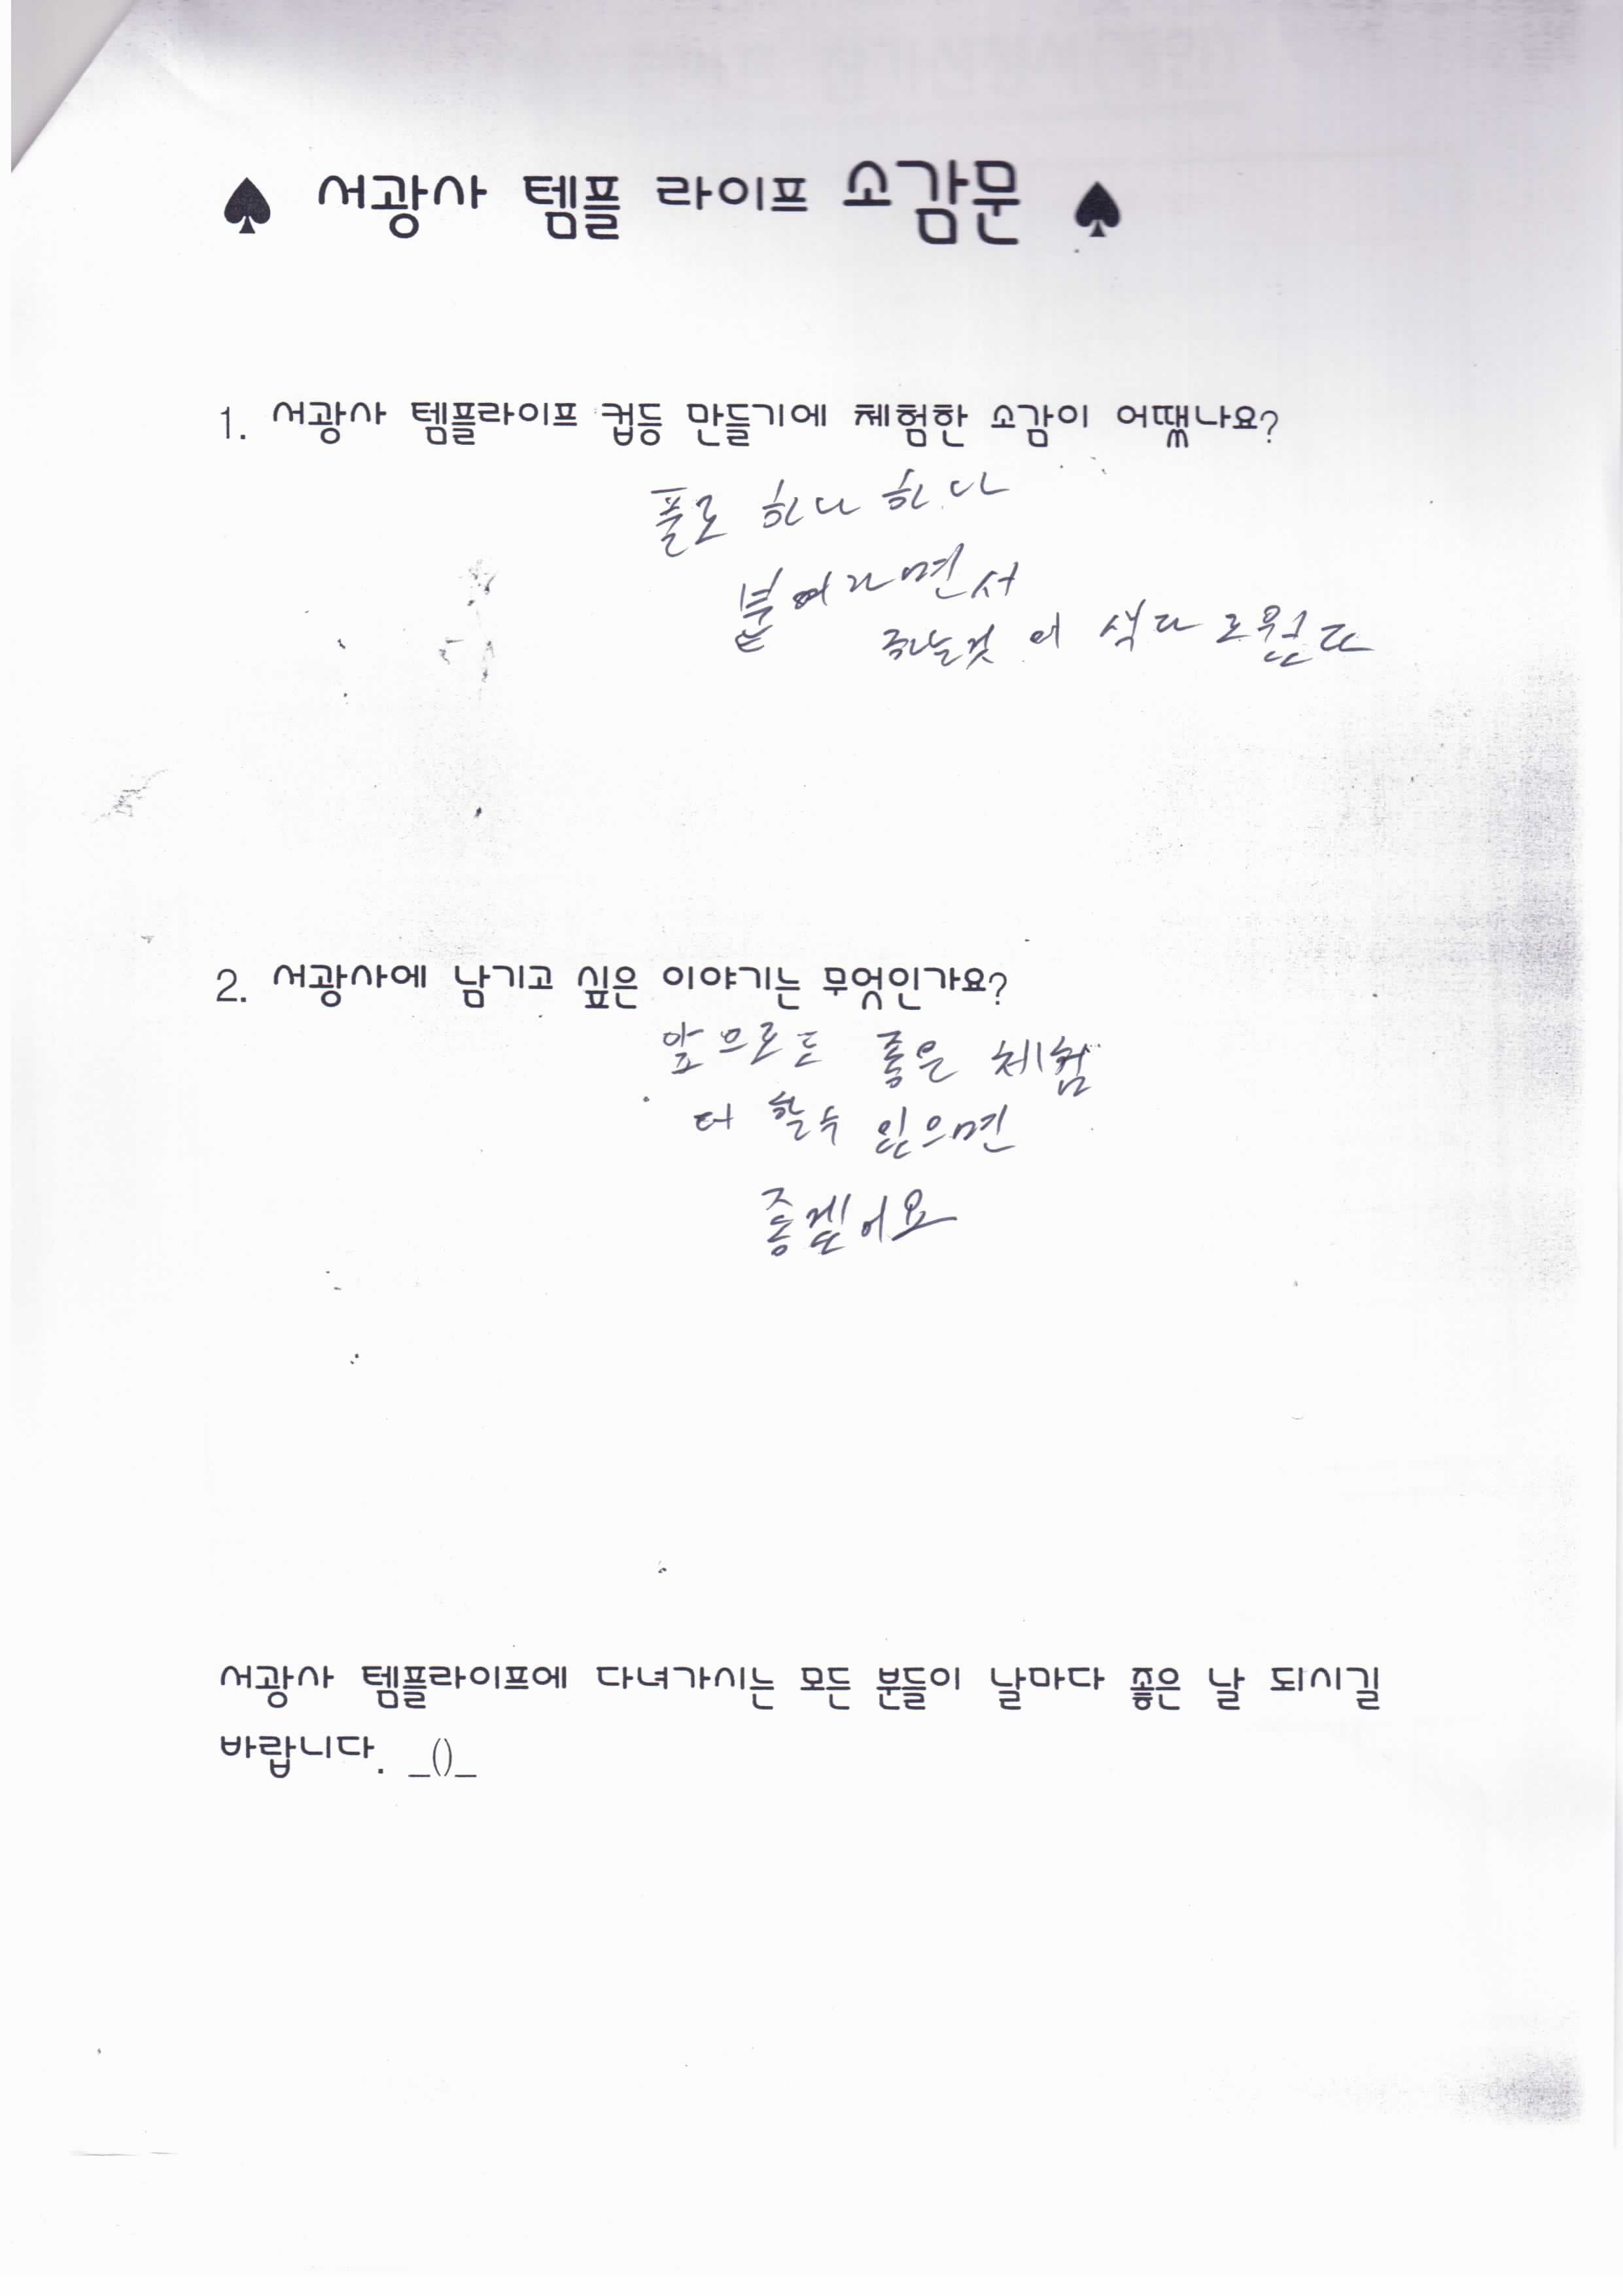 ♠ 서광사 템플 라이프 소감문 ♠
1. 서광사 템플라이프 컵등 만들기에 체험한 소감이 어땠나요?
풀로 하나 하나
붙여라면서
색다로웠다
2. 서광사에 남기고 싶은 이야기는 무엇인가요?
앞으로도 좋은 체험
더 할수 있으면
좋겠어요
서광사 템플라이프에 다녀가시는 모든 분들이 날마다 좋은 날 되시길
바랍니다. _()_